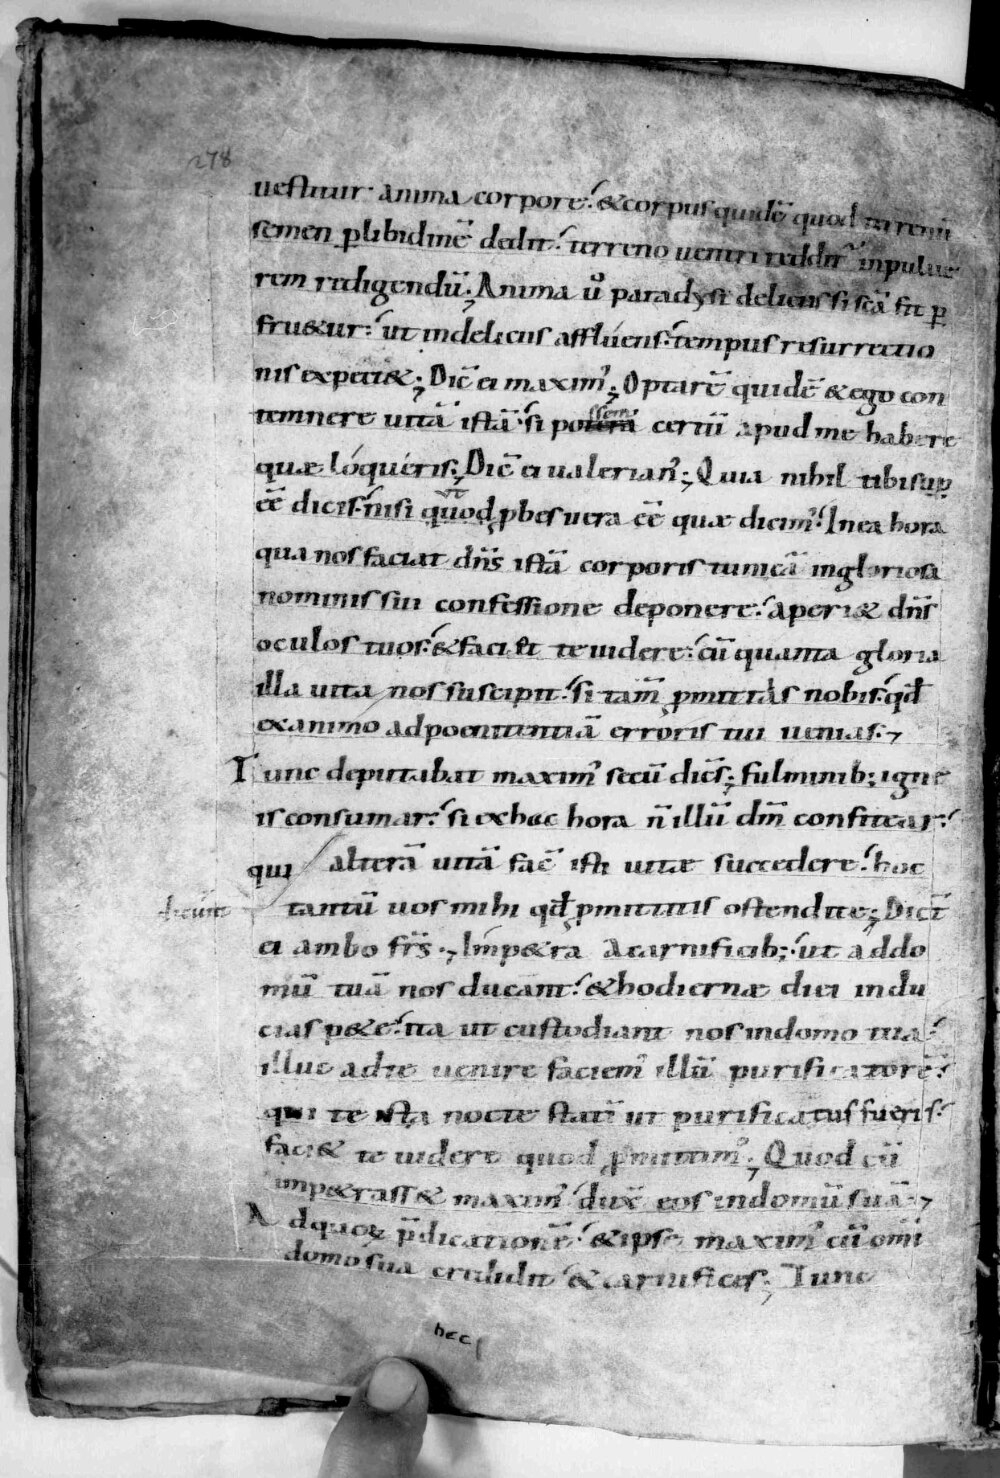 278
uestitur anima corpore. & corpus quidē quod terrenū
semen p libidinē dedit. terreno uentri reddit in pulue
rem redigendū; Anima ů paradysi deliciis si sc̄a fit p
fru&ur. ut in deliciis affluens. tempus resurrectio
nis expect&; Dic̄ ei maxim᾽; Optarē quidē & ego con
temnere uitā istā si possem certū apud me habere
quæ loqueris; Dic̄ ei ualerian᾽; Quia nihil tibi sup
eē dicis. nisi ut pbes uera eē quæ dicim᾽. In ea hora
qua nos faciat dn̄s istā corporis tunicā in gloriosa
nominis sui confessione deponere. aperi& dn̄s
oculos tuos. & faci&t te uidere. cū quanta gloria
illa uita nos suscipit. si tam̄ pmittas nobis. qđ
ex animo ad poenitentiā erroris tui uenias.
Tunc deputabat maxim᾽ secū dic̄s; fulminib; igne
is consumar. si ex hac hora n̄ illū dm̄ confitear.
qui alterā uitā fac̄ isti uitæ succedere. hoc
dicūnt tantū uos mihi qđ pmittitis ostendite; Dict̄
ei ambo fr̄s. Impera a carnificib; ut ad do
mū tuā nos ducant. & hodiernæ diei indu
cias p&e. ita ut custodiant nos in domo tua.
illuc ad te uenire faciem᾽ illū purificatorē.
qui te ista nocte statī ut purificatus fueris.
faci& te uidere quod pmittim᾽; Quod cū
imp&rass& maxim᾽ dux̄ eos in domū suā.
Ad quoꝝ p̄dicationē. & ipse maxim᾽ cū om̄i
domo sua credidit & carnifices; Tunc
hec